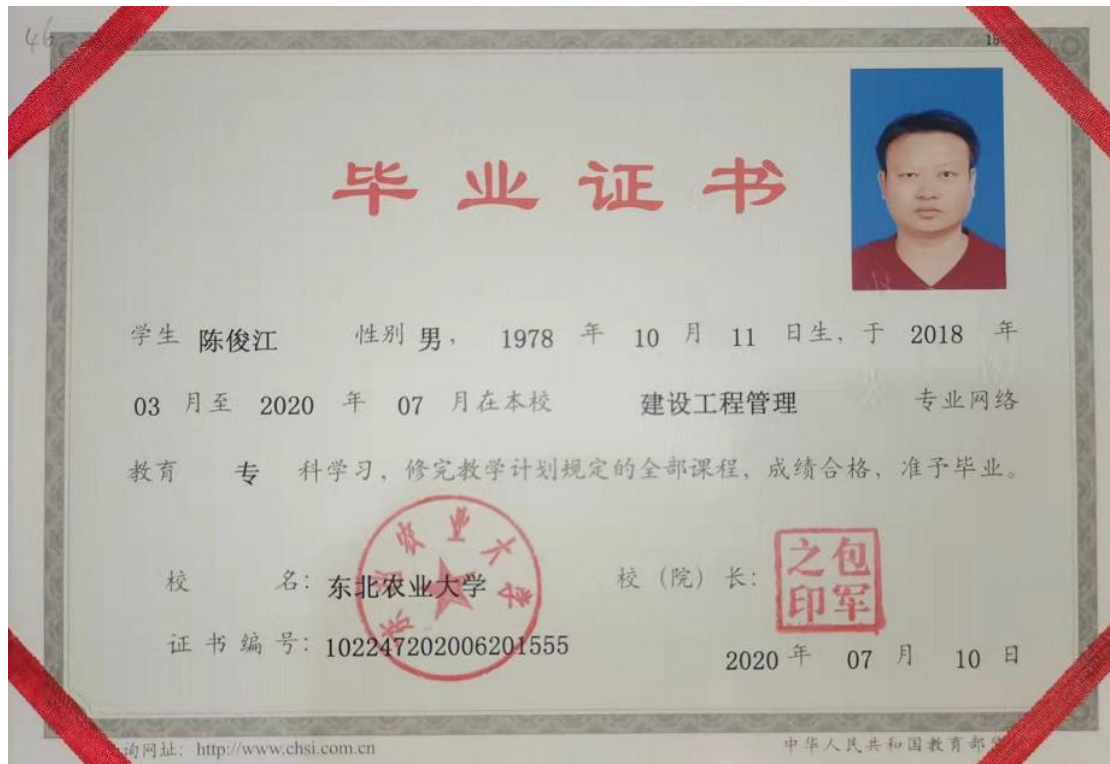 46
15
毕业证书
学生 陈俊江 性别 男， 1978 年 10 月 11 日生，于 2018 年
03 月至 2020 年 07 月在本校 建设工程管理 专业网络
教育 专 科学习，修完教学计划规定的全部课程，成绩合格，准予毕业。
东北农业大学
校 名：东北农业大学 校（院）长：
包军之印
证书编号：102247202006201555
2020 年 07 月 10 日
询网址：http://www.chsi.com.cn 中华人民共和国教育部